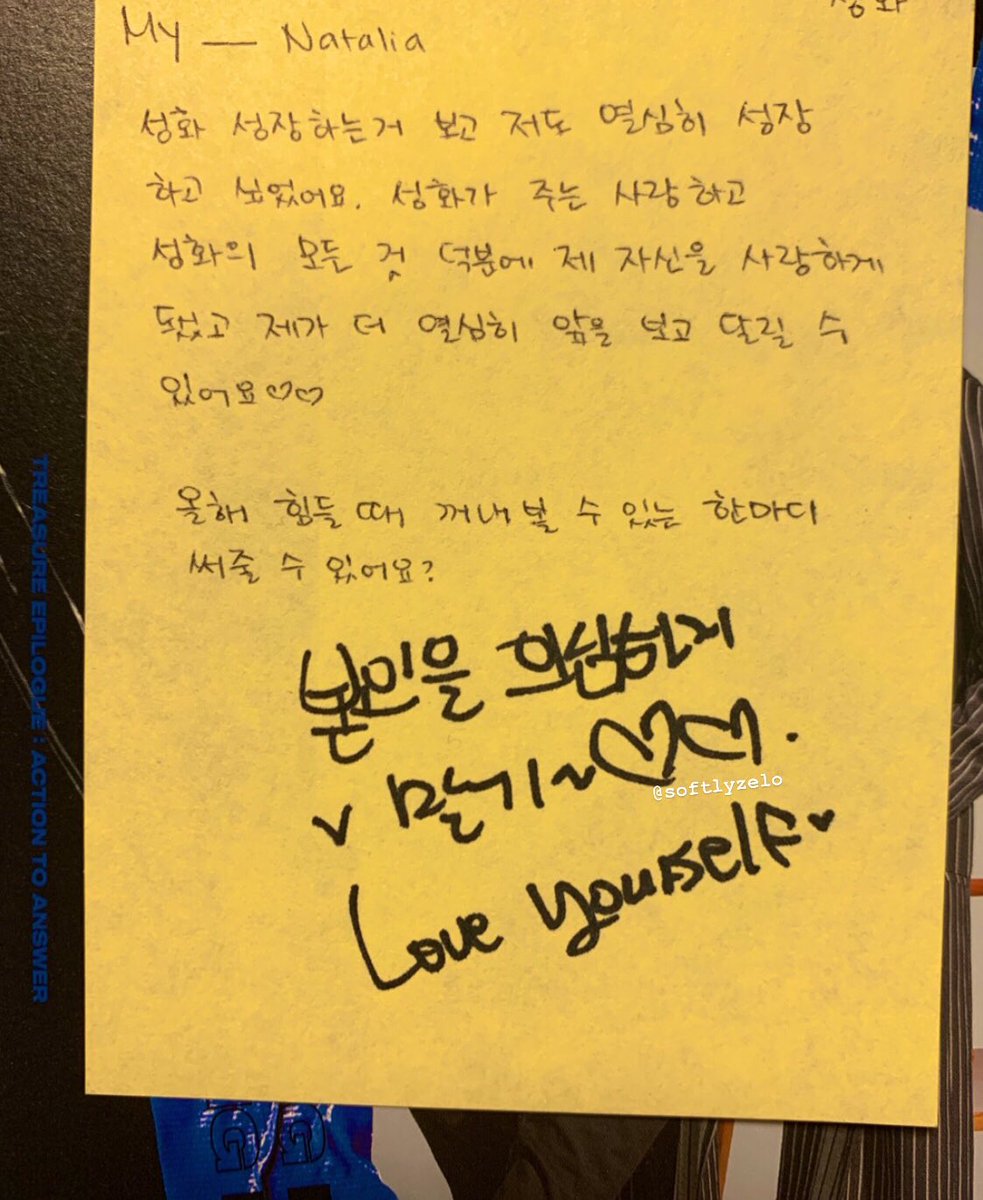 성화
My — Natalia
성화 성장하는거 보고 저도 열심히 성장
하고 싶었어요. 성화가 주는 사랑하고
성화의 모든 것 덕분에 제 자신을 사랑하게
됐고 제가 더 열심히 앞을 보고 달릴 수
있어요♡♡
올해 힘들 때 꺼내 볼 수 있는 한마디
써줄 수 있어요?
본인을 의심하지
말기~♡♡.
@softlyzelo
Love yourself
TREASURE EPILOGUE : ACTION TO ANSWER